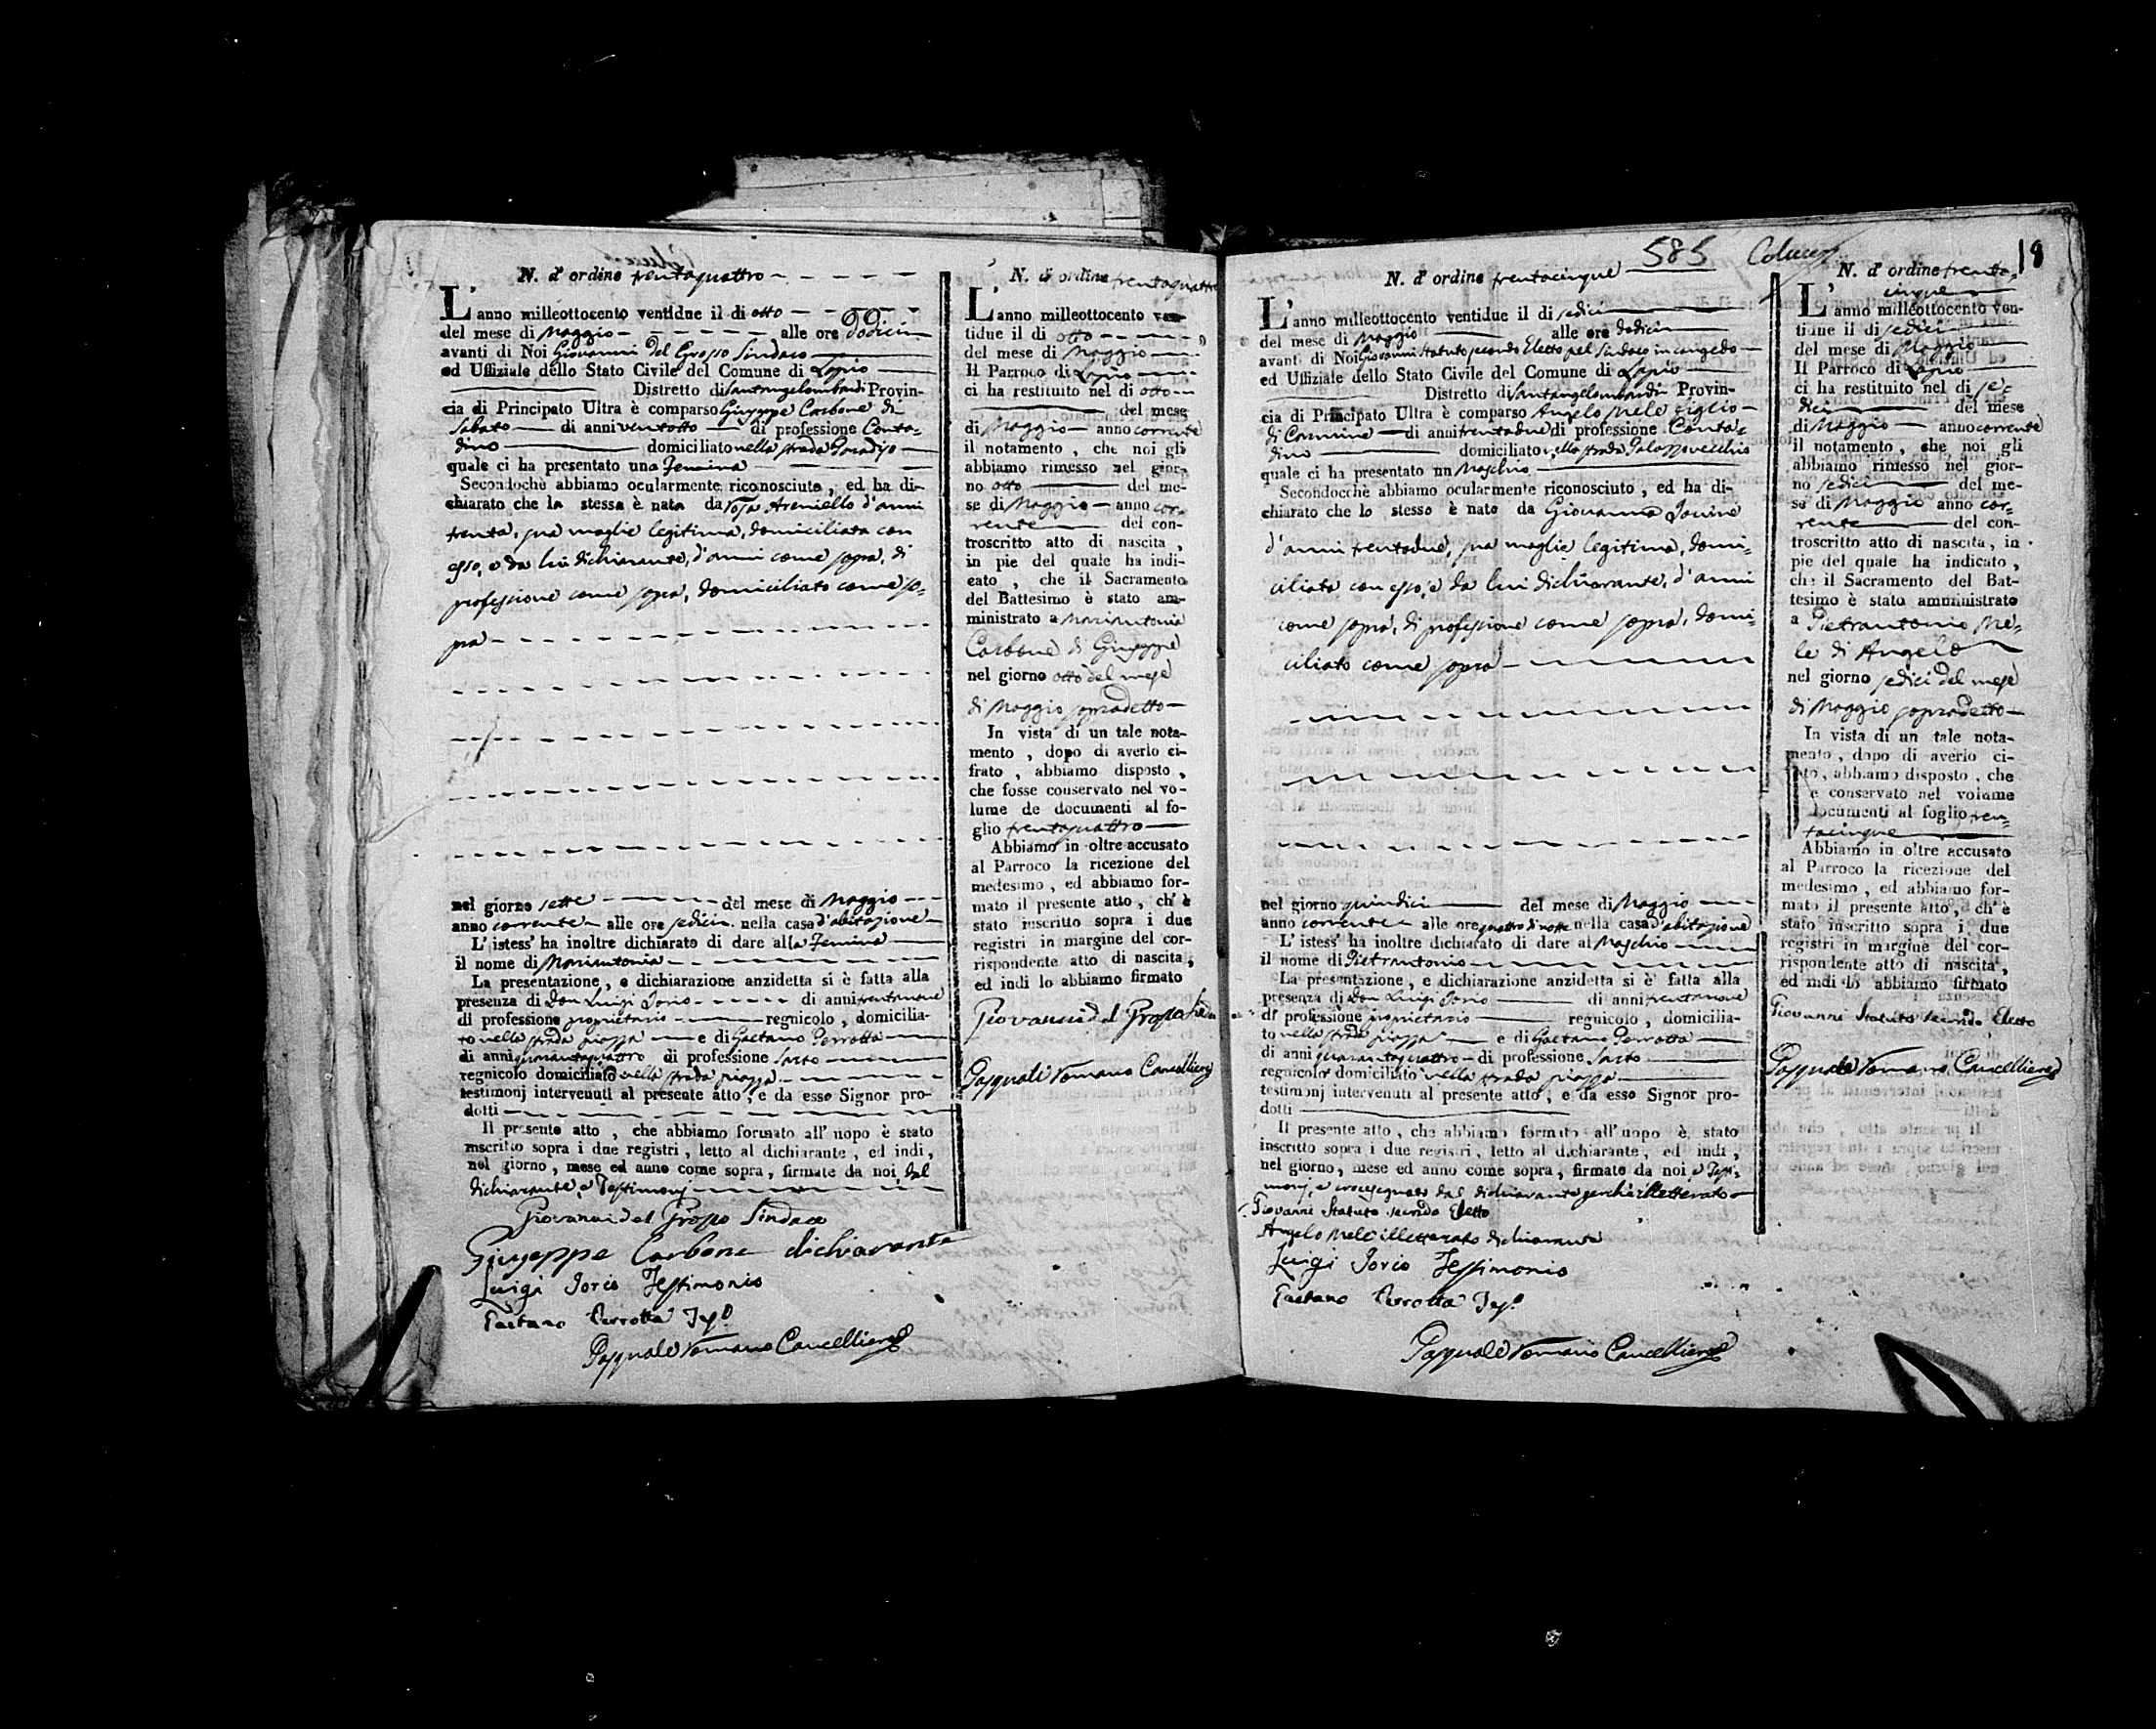 N. d' ordine trentaquattro
L' anno milleottocento ventidue il di otto
del mese di Maggio alle ore dodici
avanti di Noi Giovanni Del Grosso Sindaco
ed Uffiziale dello Stato Civile del Comune di Lapio
Distretto di Santangelombardi Provin-
cia di Principato Ultra è comparso Giuseppe Carbone di
Sabato di anni ventotto di professione Conta-
dino domiciliato nella strada Paradiso
quale ci ha presentato una Femina
Secondochè abbiamo ocularmente riconosciuto, ed ha di-
chiarato che la stessa è nata da Rosa Areniello d'anni
trenta, sua moglie legitima, domiciliata con
esso, e da lui dichiarante, d'anni come sopra, di
professione come sopra, domiciliato come so-
pra
nel giorno sette del mese di Maggio
anno corrente alle ore sedici nella casa d'abitazione
L' istess' ha inoltre dichiarato di dare alla Femina
il nome di Mariantonia
La presentazione, e dichiarazione anzidetta si è fatta alla
presenza di Don Luigi Jorio di anni trentanove
di professione proprietario regnicolo, domicilia-
to nella strada piazza e di Gaetano Perrotta
di anni quarantaquattro di professione Sarto
regnicolo domiciliato nella strada piazza
testimonj intervenuti al presente atto, e da esso Signor pro-
dotti
Il presente atto, che abbiamo formato all' uopo è stato
inscritto sopra i due registri, letto al dichiarante, ed indi,
nel giorno, mese ed anno come sopra, firmato da noi, dal
dichiarante, e Testimonj
Giovanni del Grosso Sindaco
Giuseppe Carbone dichiarante
Luigi Jorio Testimonio
Gaetano Perrotta Tes.o
Pasquale Romano Cancelliere
N. d' ordine trentaquattro
L' anno milleottocento ven-
tidue il di otto
del mese di Maggio
Il Parroco di Lapio
ci ha restituito nel di otto
del mese
di Maggio anno corrente
il notamento, che noi gli
abbiamo rimesso nel gior-
no otto del me-
se di Maggio anno cor-
rente del con-
troscritto atto di nascita,
in pie del quale ha indi-
cato, che il Sacramento
del Battesimo è stato am-
ministrato a Mariantonia
Carbone di Giuseppe
nel giorno otto del mese
di Maggio sopradetto
In vista di un tale nota-
mento, dopo di averlo ci-
frato, abbiamo disposto,
che fosse conservato nel vo-
lume de documenti al fo-
glio trentaquattro
Abbiamo in oltre accusato
al Parroco la ricezione del
medesimo, ed abbiamo for-
mato il presente atto, ch' è
stato inscritto sopra i due
registri in margine del cor-
rispondente atto di nascita,
ed indi lo abbiamo firmato
Giovanni del Grosso Sindaco
Pasquale Romano Cancelliere
585 18
N. d' ordine trentacinque
L' anno milleottocento ventidue il di sedici
del mese di Maggio alle ore dodici
avanti di Noi Giovanni Statuto secondo Eletto pel Sindaco in congedo
ed Uffiziale dello Stato Civile del Comune di Lapio
Distretto di Santangelombardi Provin-
cia di Principato Ultra è comparso Angelo Mele figlio
di Carmine di anni trentadue di professione Conta-
dino domiciliato nella strada Palazzovecchio
quale ci ha presentato un Maschio
Secondocchè abbiamo ocularmente riconosciuto, ed ha di-
chiarato che lo stesso è nato da Giovanna Jovine
d'anni trentadue, sua moglie legitima, domi-
ciliata con esso, e da lui dichiarante, d'anni
come sopra, di professione come sopra, domi-
ciliato come sopra
nel giorno quindici del mese di Maggio
anno corrente alle ore quattro di notte nella casa d'abitazione
L' istess' ha inoltre dichiarato di dare al Maschio
il nome di Pietrantonio
La presentazione, e dichiarazione anzidetta si è fatta alla
presenza di Don Luigi Jorio di anni trentanove
di professione proprietario regnicolo, domicilia-
to nella strada piazza e di Gaetano Perrotta
di anni quarantaquattro di professione Sarto
regnicolo domiciliato nella strada piazza
testimonj intervenuti al presente atto, e da esso Signor pro-
dotti
Il presente atto, che abbiamo formato all' uopo è stato
inscritto sopra i due registri, letto al dichiarante, ed indi,
nel giorno, mese ed anno come sopra, firmato da noi e Testi-
monj, e crocesegnato dal dichiarante perchè illetterato
Giovanni Statuto secondo Eletto
Angelo Mele illetterato dichiarante
Luigi Jorio Testimonio
Gaetano Perrotta Tes.o
Pasquale Romano Cancelliere
N. d' ordine trenta-
cinque
L' anno milleottocento ven-
tidue il di sedici
del mese di Maggio
Il Parroco di Lapio
ci ha restituito nel di se-
dici del mese
di Maggio anno corrente
il notamento, che noi gli
abbiamo rimesso nel gior-
no sedici del me-
se di Maggio anno cor-
rente del con-
troscritto atto di nascita, in
pie del quale ha indicato,
che il Sacramento del Bat-
tesimo è stato amministrato
a Pietrantonio Me-
le di Angelo
nel giorno sedici del mese
di Maggio sopradetto
In vista di un tale nota-
mento, dopo di averlo ci-
frato, abbiamo disposto, che
e conservato nel volume
documenti al foglio tren-
tacinque
Abbiamo in oltre accusato
al Parroco la ricezione del
medesimo, ed abbiamo for-
mato il presente atto, ch' è
stato inscritto sopra i due
registri in margine del cor-
rispondente atto di nascita,
ed indi lo abbiamo firmato
Giovanni Statuto secondo Eletto
Pasquale Romano Cancelliere